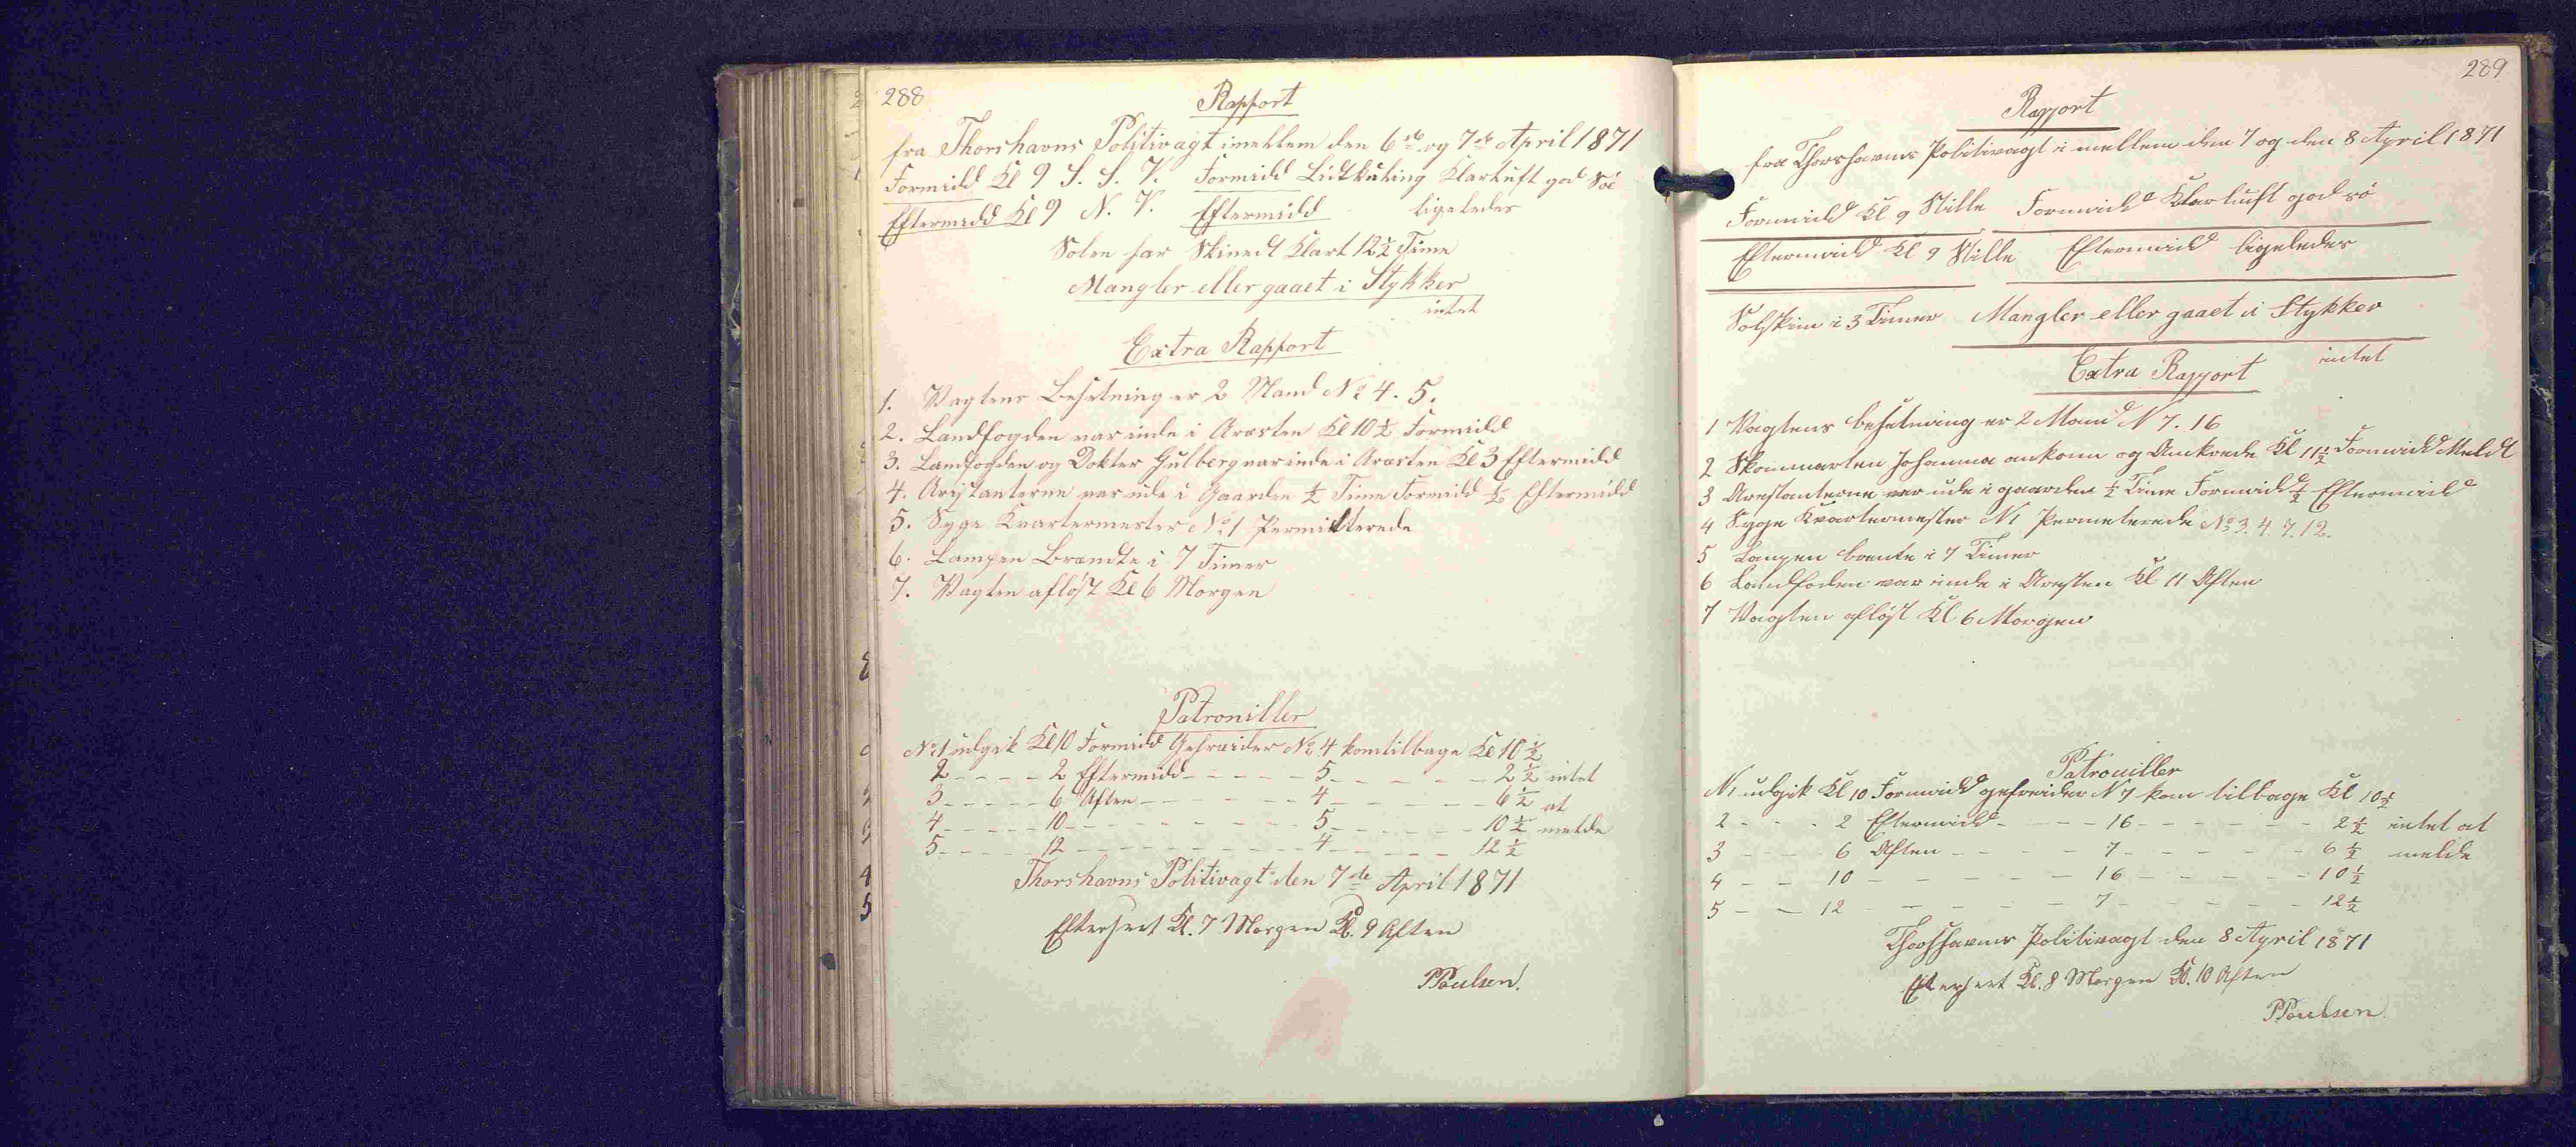 288
Rapport
fra Thorshavns Politivagt imellem den 6de og 7de April 1871
Formidd Kl 9 S. S. V. Formidd Lidtkuling Klarluft god Söe
Eftermidd Kl 9 N. V. Eftermidd ligeledes
Solen har Skinedt Klart 12½ Time
Mangler eller gaaet i Stykker
intet
Extra Rapport
1. Vagtens Besetning er 2 Mand No 4. 5.
2. Landfogden var inde i Aræsten Kl 10½ Formidd
3. Landfogden og Dokter Gulberg var inde i Aræsten Kl 3 Eftermidd
4. Aristanterne var ude i Gaarden ½ Time Formidd ½ Eftermidd
5. Syge Kvartermester No 1 Permitterede
6. Lampen Brændte i 7 Timer
7. Vagten aflöst Kl 6 Morgen
Patrouiller
No 1 udgik Kl 10 Formidd Gefreider No 4 kom tilbage Kl 10½
2 - - - - 2 Eftermidd - - - - - 5 - - - - - - 2½ intet
3 - - - - - 6 Aften - - - - - - 4 - - - - - - 6½ at
4 - - - - - 10 - - - - - - - - - 5 - - - - - - 10½ melde
5 - - - - - 12 - - - - - - - - - 4 - - - - - 12½
Thorshavns Politivagt den 7de April 1871
Efterseet Kl. 7 Morgen Kl. 9 Aften
PPoulsen.
289
Rapport
fra Thorshavns Politivagt i mellem den 7 og den 8 April 1871
Formidd Kl 9 Stille Formidd Klarluft god sö
Eftermidd Kl 9 Stille Eftermidd ligeledes
Solskin i 3 Timer Mangler eller gaaet i Stykker
intet
Extra Rapport
1 Vagtens besetning er 2 Mand N 7. 16
2 Skonnarten Johanna ankom og Ankrede Kl 11½ Formidd Meldt
3 Arestanterne var ude i gaarden ½ Time Formidd ½ Eftermidd
4 Syge Kvartermester N1 Permeterede No 3. 4. 7. 12.
5 Lampen brente i 7 Timer
6 Landfoden var inde i Aresten Kl 11 Aften
7 Vagten aflöst Kl 6 Morgen
Patrouiller
N1 udgik Kl 10 Formidd gefreider N 7 kom tilbage Kl 10½
2 - - - 2 Eftermidd - - - - 16 - - - - - - 2½ intet at
3 - - 6 Aften - - - - 7 - - - - - - 6½ melde
4 - - 10 - - - - - - 16 - - - - - 10½
5 - - 12 - - - - - - 7 - - - - - 12½
Thorshavns Politivagt den 8 April 1871
Efterseet Kl. 8 Morgen Kl. 10 Aften
PPoulsen.